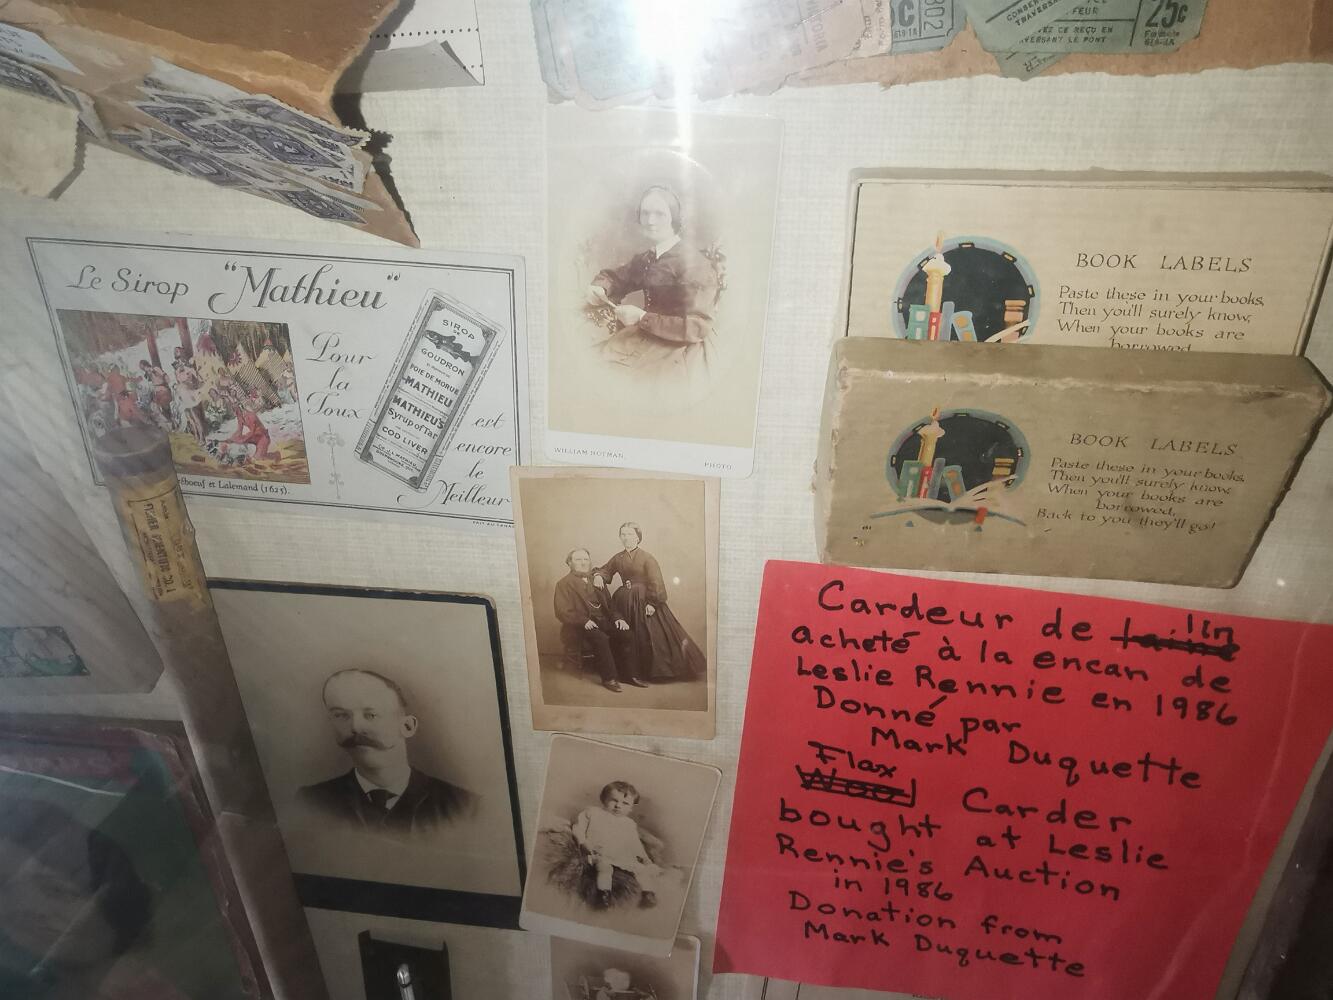 25¢
Le Sirop "Mathieu"
Pour
la
Toux
SIROP
DE
GOUDRON
FOIE DE MORUE
MATHIEU
MATHIEU'S
Syrup of Tar
COD LIVER
est
encore
le
Meilleur
et Lalemand (1625).
WILLIAM NOTMAN,
PHOTO
BOOK LABELS
Paste these in your books,
Then you'll surely know,
When your books are
borrowed
BOOK LABELS
Paste these in your books,
Then you'll surely know,
When your books are
borrowed,
Back to you they'll go!
Cardeur de lin
acheté à la encan de
Leslie Rennie en 1986
Donné par
Mark Duquette
Flax
Carder
bought at Leslie
Rennie's Auction
in 1986
Donation from
Mark Duquette